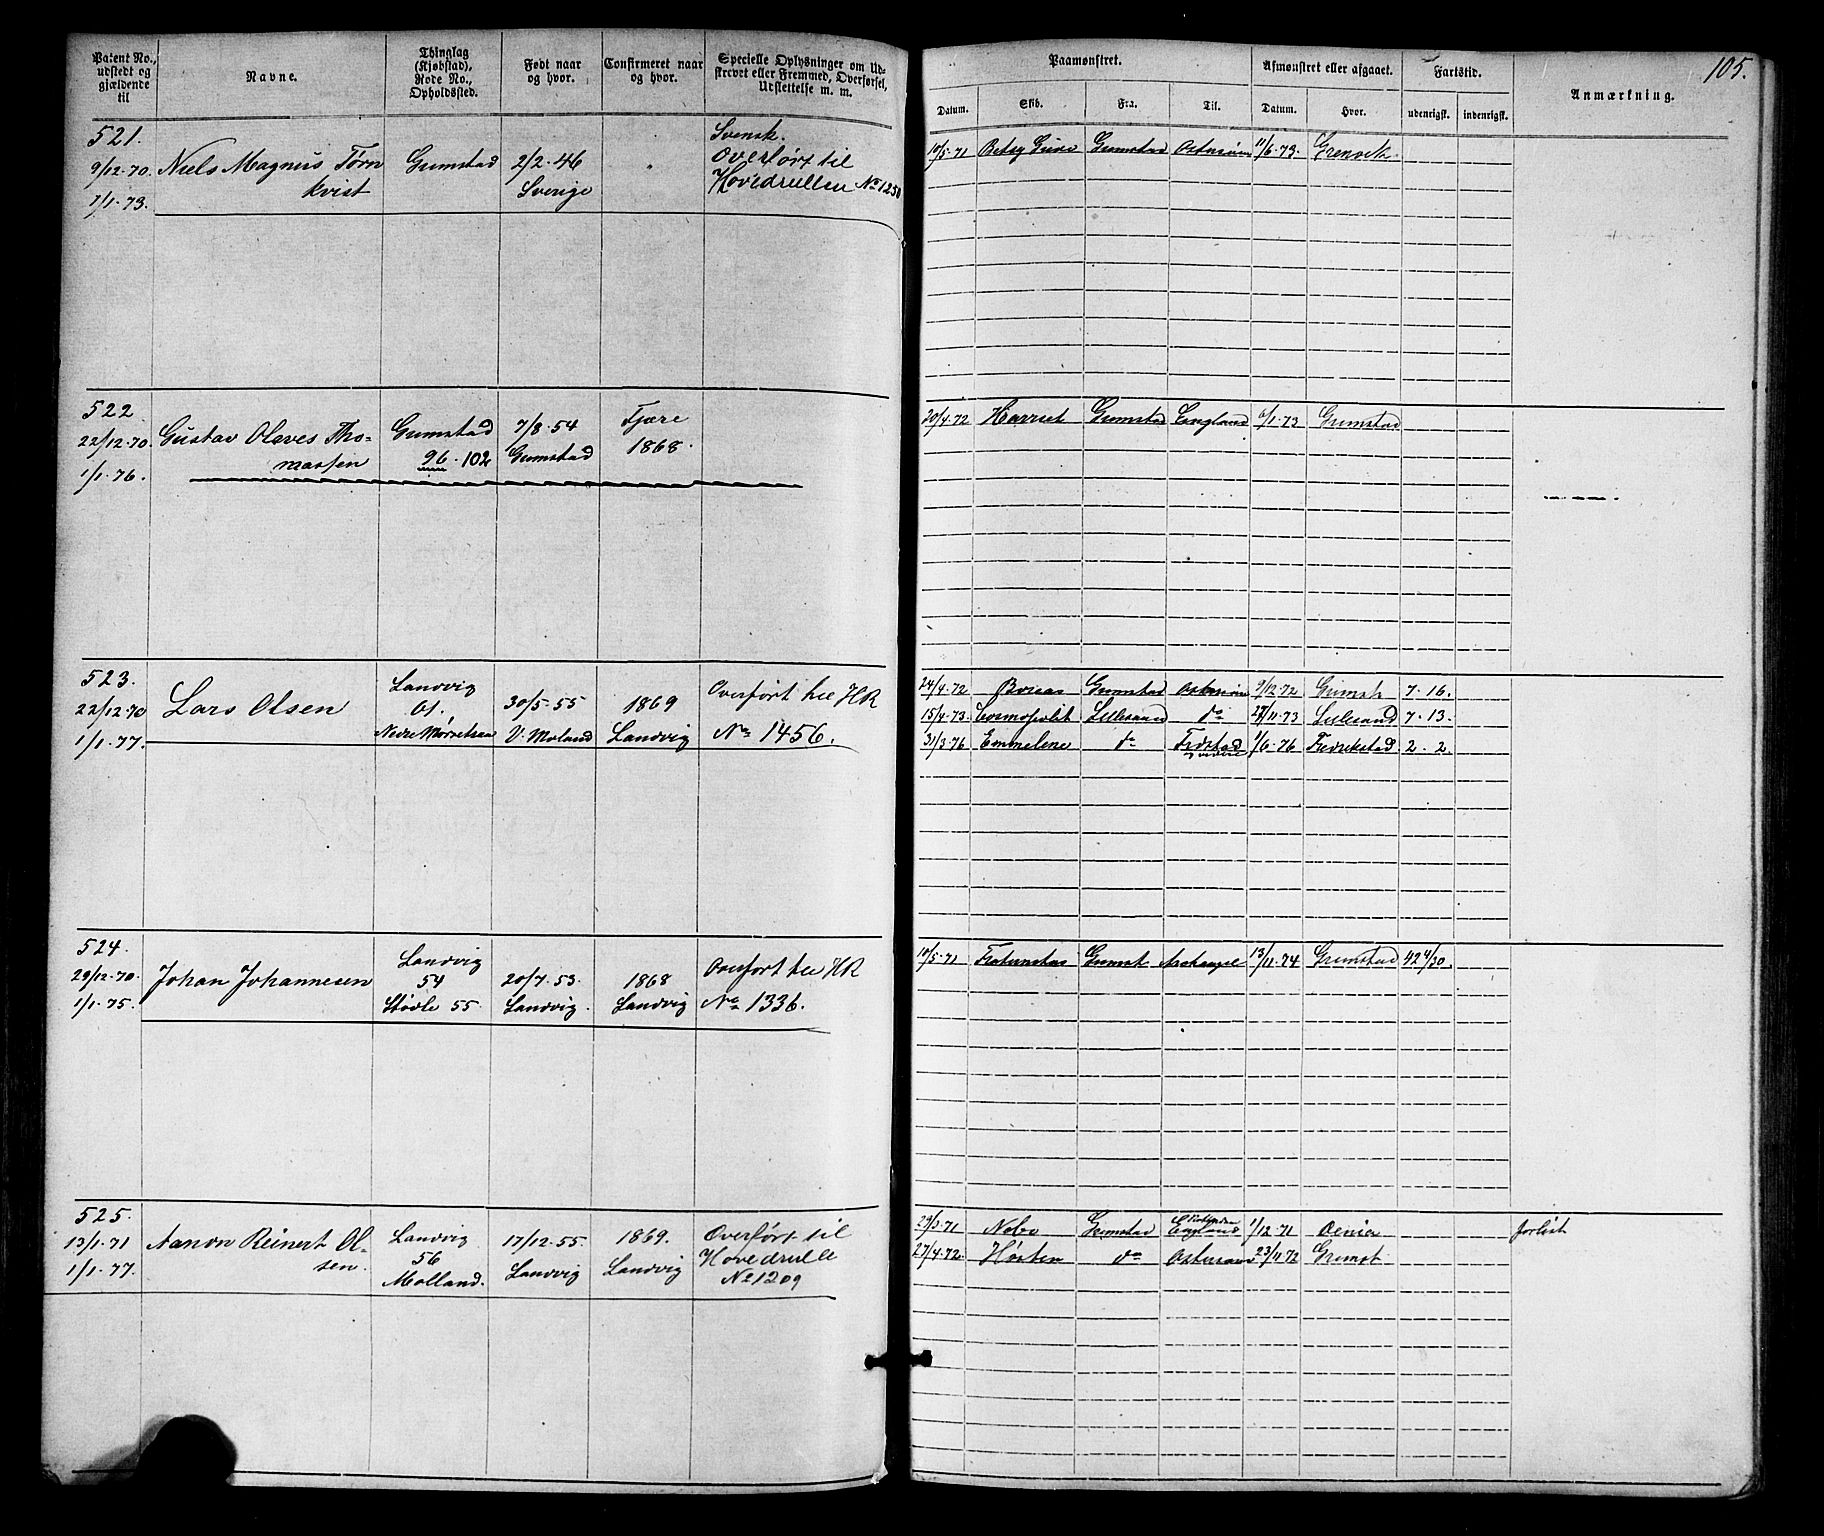 105.
Patent No., udstedt og gjældende til
Navne.
Thinglag (Kjøbstad), Rode No., Opholdssted.
Født naar og hvor.
Confirmeret naar og hvor.
Specielle Oplysninger om Udskrevet eller Fremmed, Overførsel, Udslettelse m. m.
Paamønstret.
Afmønstret eller afgaaet.
Fartstid.
Anmærkning.
Datum. Skib. Fra. Til. Datum. Hvor. udenrigsk. indenrigsk.
521.
9/12.70.
1/1.73.
Niels Magnus Törn
kvist
Grimstad
2/2.46
Sverige
"
Svensk.
Overført til
Hovedrullen No 1250
10/5.71 Grimstad 11/6.73
522
22/12.70.
1/1.76.
Gustav Olaves Tho-
massen
Grimstad
96.102
7/8.54
Grimstad
Fjære
1868.
20/4.72 Harriet Grimstad England 6/1.73 Grimstad
523.
22/12.70
1/1.77.
Lars Olsen
Landvig
30/5.55
V. Moland
1869
Landvig
Overført til HR
No 1456.
24/4.72 Boreas Grimstad 9/12.72 Grimst. 7.16.
15/4.73. Cosmopolit Lillesand do 27/11.73 Lillesand 7.13.
31/3.76 Emmelene do Fredstad 1/6.76 Fredrikstad 2.2.
524.
29/12.70.
1/1.75.
Johan Johannesen
Landvig
54
Stødle 55
20/7.53.
Landvig.
1868
Landvig
Overført til HR
No 1336.
10/5.71 Grimst Archangel 13/11.74 Grimstad 42 4/30.
525.
13/1.71
1/1.77.
Aanon Reinert Ol-
sen.
Landvig
56
Molland.
17/12.55.
Landvig
1869.
Landvig
Overført til
Hovedrulle
No 1209
29/3.71 Grimstad England 1/12.71 Forlist
27/4.72. do 23/11.72 Grimst.